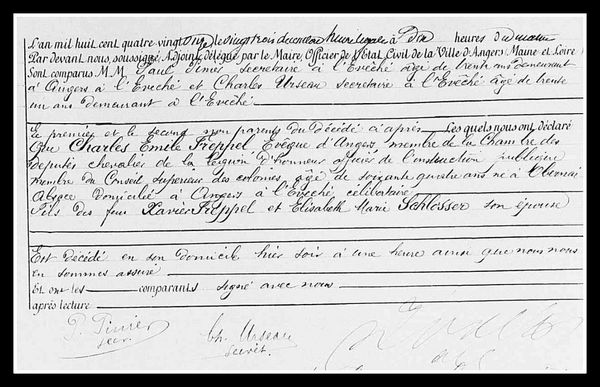 L'an mil huit cent quatre vingt onze le vingt trois décembre heure légale à dix heures du matin
Par devant nous, soussigné, Adjoint délégué par le Maire, Officier de l'Etat Civil de la Ville d'Angers (Maine et Loire)
Sont comparus M.M. Paul Pinier Secrétaire à l'Evêché âgé de trente ans demeurant
à Angers à l'Evêché et Charles Urseau secrétaire à l'Evêché âgé de trente
un ans demeurant à l'Evêché
Le premier et le second non parents du décédé ci après Les quels nous ont déclaré
Que Charles Emile Freppel, Evêque d'Angers, membre de la Chambre des
députés chevalier de la Légion d'honneur officier de l'instruction publique
membre du Conseil supérieur des colonies âgé de soixante quatre ans né à Obernai
Alsace domicilié à Angers à l'Evêché célibataire
Fils des feu Xavier Freppel et Elisabeth Marie Schlosser son épouse
Est décédé en son domicile hier soir à une heure ainsi que nous nous
en sommes assuré
Et ont les comparants signé avec nous
après lecture
P. Pinier
secr.
Ch. Urseau
secrét.